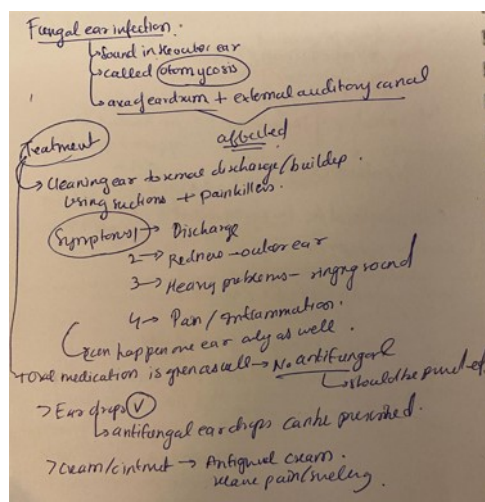 Fungal ear infection.
found in the outer ear
called otomycosis
eardrum + external auditory canal
affected
Treatment
Cleaning ear to remove discharge/buildup.
using suctions + Painkillers.
Symptoms 1 → Discharge
2 → Redness - outer ear
3 → Heavy problems - ringing sound
4 → Pain / Inflammation.
can happen one ear only as well.
Oral medication is given as well → No antifungal
should be
> Ear drops ✓
antifungal ear drops can be prescribed.
> cream/ointment → Antifungal cream.
pain/swelling.